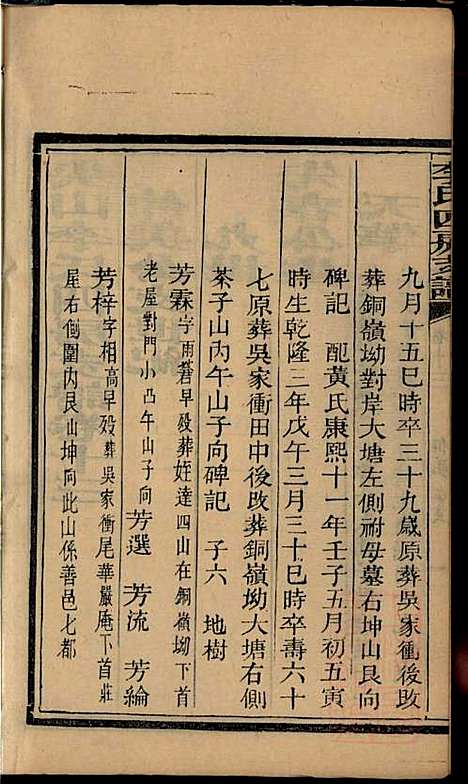 李氏四房支譜
九月十五巳時卒三十九歲原葬吳家衝後改
葬銅嶺坳對岸大塘左側祔毋墓右坤山艮向
碑記　配黃氏康熙十一年壬子五月初五寅
時生乾隆三年戊午三月三十巳時卒壽六十
七原葬吳家衝田中後改葬銅嶺坳大塘右側
茶子山丙午山子向碑記　子六　地樹
芳霖字雨蒼早殁葬姪達四山在銅嶺坳下首
老屋對門小凸午山子向　芳選　芳流　芳綸
芳梓字相高早殁葬吳家衝尾華嚴庵下首莊
屋右側圍內艮山坤向此山係善邑七都